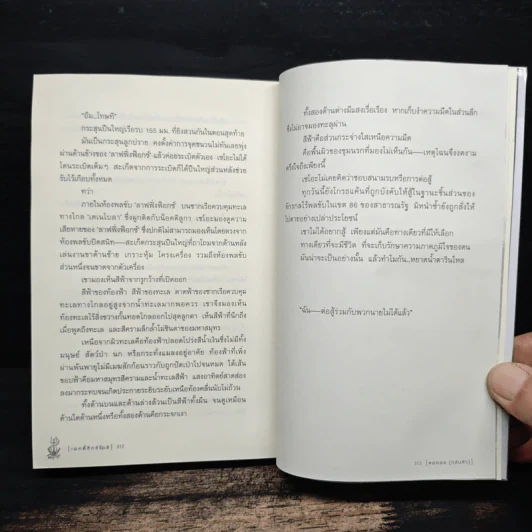 "อืม...โทษที"
กระสุนปืนใหญ่เรือรบ 155 มม. ที่ยิงสวนกันในตอนสุดท้าย
มันเป็นกระสุนลูกปราย คงตั้งค่าการจุดชนวนไม่ทันเลยพุ่ง
ผ่านด้านข้างของ 'ลาฟฟิ่งฟ็อกซ์' แล้วค่อยระเบิดตัวเอง เซโอะไม่ได้
โดนระเบิดเต็มๆ สะเก็ดจากการระเบิดที่ได้ปืนใหญ่ส่วนหลังช่วย
รับไว้เกือบทั้งหมด
ทว่า
ภายในห้องพลขับ 'ลาฟฟิ่งฟ็อกซ์' บนซากเรือควบคุมทะเล
เสียหายของ 'ลาฟฟิ่งฟ็อกซ์' ที่ปกติไม่สามารถมองเห็นได้โดยตรงจาก
ห้องพลขับปิดสนิท——สะเก็ดกระสุนปืนใหญ่ที่ถาโถมจากด้านหลัง
เล่นงานขาด้านซ้าย เกราะหุ้ม โครงเครื่อง รวมถึงห้องพลขับ
ส่วนหนึ่งจนขาดจากตัวเครื่อง
เขามองเห็นสีฟ้าจากรูกว้างที่เปิดออก
สีฟ้าของท้องฟ้า สีฟ้าของทะเล ดาดฟ้าของซากเรือควบคุม
ทะเลทางไกลอยู่สูงจากน้ำทะเลมากพอควร เขาจึงมองเห็น
ท้องทะเลไร้สิ่งขวางกั้นทอดไกลออกไปสุดลูกตา เห็นสีฟ้าที่นึกถึง
เมื่อพูดถึงทะเล และสีครามลึกล้ำไม่ชินตาของมหาสมุทร
เหนือจากผิวทะเลคือท้องฟ้าปลอดโปร่งสีน้ำเงินซึ่งไม่มีทั้ง
มนุษย์ สัตว์ป่า นก หรือกระทั่งแมลงอยู่อาศัย ท้องฟ้าที่เพิ่ง
ผ่านพ้นพายุไม่มีเมฆสักก้อนราวกับถูกปัดเป่าไปจนหมด ใต้เส้น
ขอบฟ้าคือมหาสมุทรสีครามและน้ำทะเลสีฟ้า แสงอาทิตย์สาดส่อง
ลงมากระทบจนเกิดประกายระยิบระยับเหนือท้องคลื่นนับไม่ถ้วน
ทั้งด้านบนและด้านล่างล้วนเป็นสีฟ้าทั้งผืน จนดูเหมือน
ด้านใดด้านหนึ่งหรือทั้งสองด้านคือกระจกเงา
[เอตตี้ซิกซ์86] 312
ทั้งสองด้านต่างมีแสงเรื่อเรือง หากเก็บงำความมืดในส่วนลึก
ซึ่งไม่อาจมองทะลุผ่าน
สีฟ้าคือส่วนกระจ่างใสเหนือความมืด
คือพื้นผิวของขุมนรกที่มองไม่เห็นก้น——เหตุไฉนจึงงดงาม
ตรึงใจถึงเพียงนี้
เซโอะไม่เคยคิดว่าชอบสนามรบหรือการต่อสู้
ไปตายอย่างเปล่าประโยชน์
เขาไม่ได้อยากสู้ เพียงแต่มันคือทางเดียวที่มีให้เลือก
ทางเดียวที่จะมีชีวิต ที่จะเก็บรักษาความภาคภูมิใจของตน
มันน่าจะเป็นอย่างนั้น แล้วทำไมกัน..หยาดน้ำตารินไหล
"ฉัน——ต่อสู้ร่วมกับพวกนายไม่ได้แล้ว"